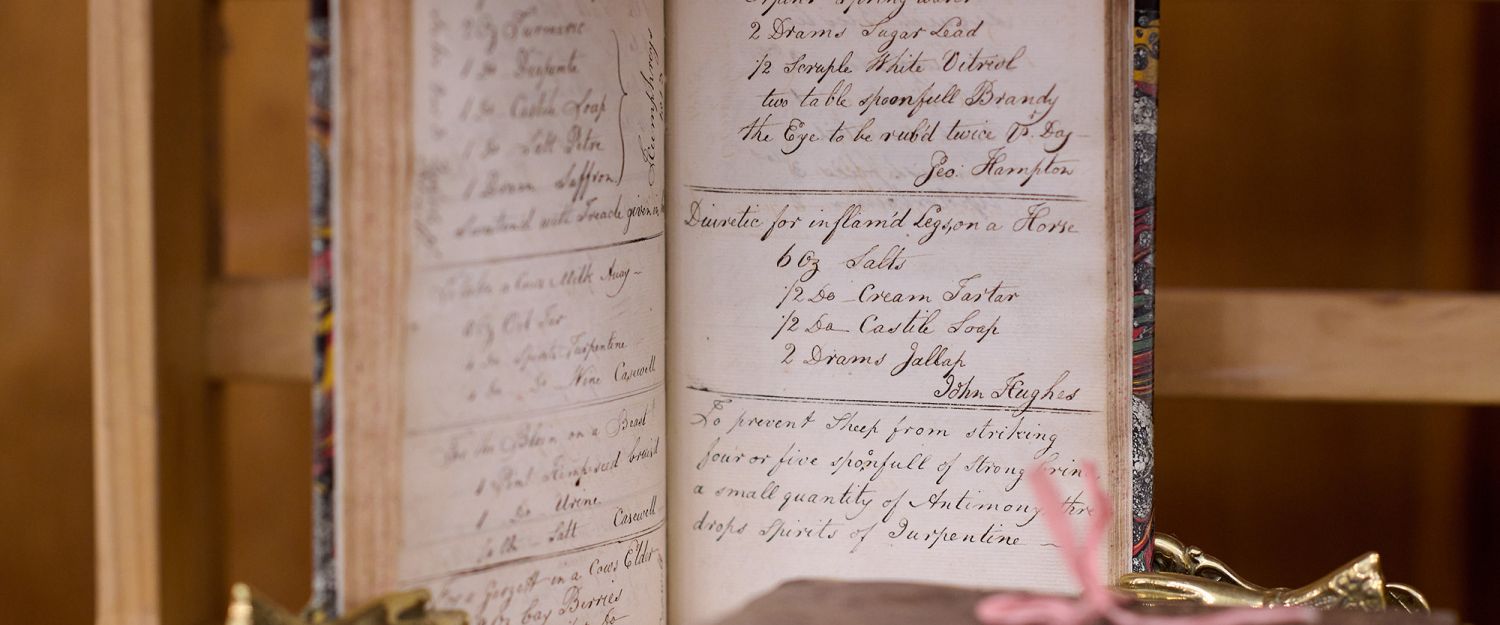 2 oz Turmeric
1 Do
1 Do Castile Soap
1 Do Salt Petre
1 Dram Saffron
Humphreys
Sweeten'd with Treacle given in
Cows Milk Away
Tar
Spirits Turpentine
Do Wine Casewell
For the Blain on a Beast
1 Pint Hempseed bruis'd
1 Do Urine
Salt Casewell
For a Gargett in a Cows Elder
bay Berries
Spring Water
2 Drams Sugar Lead
1/2 Scruple White Vitriol
two table spoonfull Brandy
the Eye to be rub'd twice Pr. Day
Geo: Hampton
Diuretic for inflam'd Legs, on a Horse
6 Oz Salts
1/2 Do Cream Tartar
1/2 Do Castile Soap
2 Drams Jallap
John Hughes
To prevent Sheep from striking
four or five sponfull of Strong brin
a small quantity of Antimony thre
drops Spirits of Turpentine